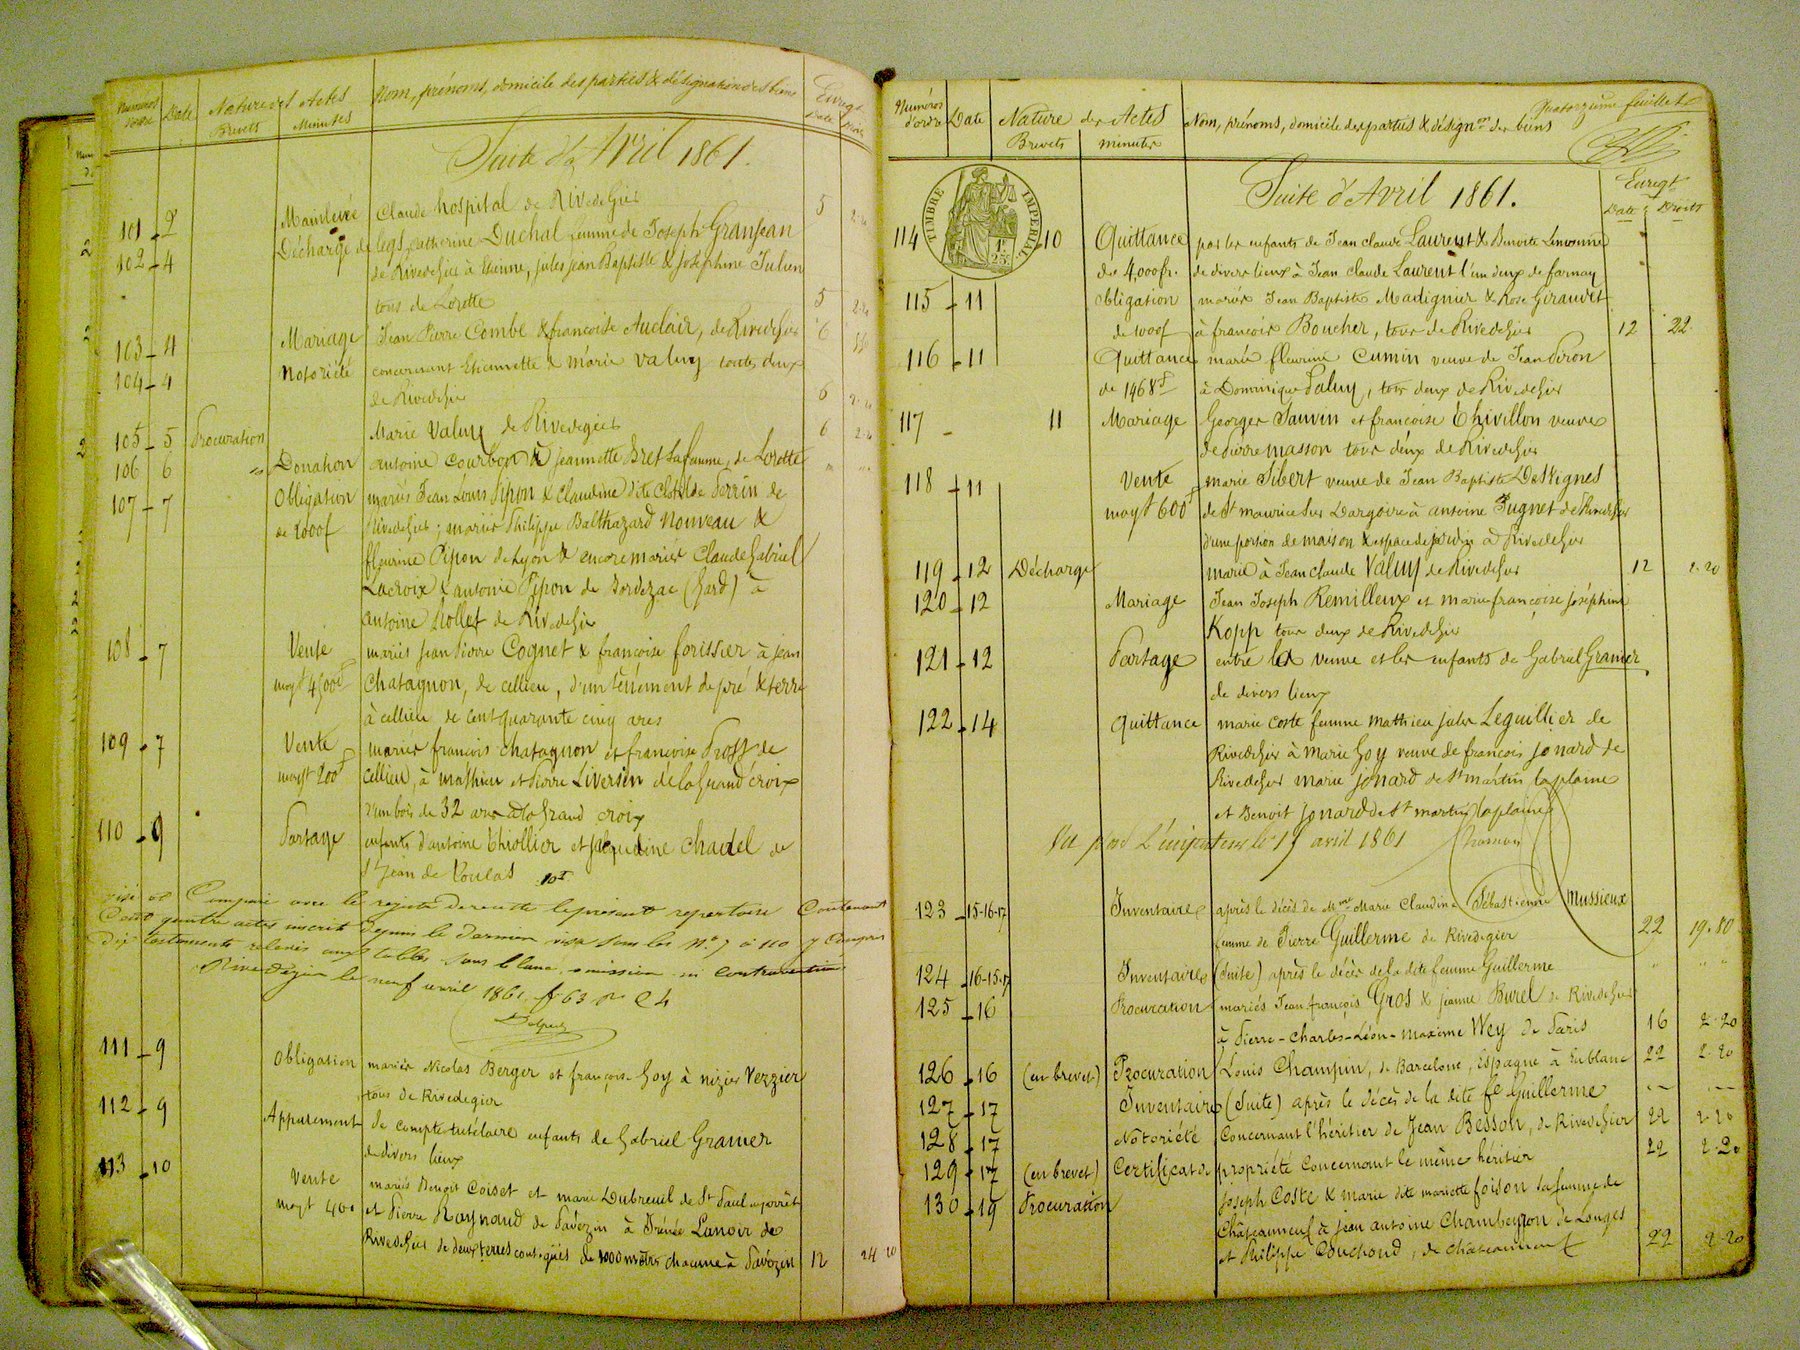 Numéros d'ordre Date Nature des Actes Nom, prénoms, domicile des parties & désignation des biens Enregt
Brevets Minutes Date
Suite d'Avril 1861.
101 - 2 Mainlevée Claude hospital de Rivedegier 5
102 - 4 Décharge de legs, Catherine Duchal femme de Joseph Granjean
de Rivedegier à Etienne, jules jean Baptiste & joséphine Julien
tous de Lorette 5
103 - 4 Mariage Jean Pierre Combe & françoise Auclair, de Rivedegier 6
104 - 4 Notoriété concernant Etiennette & marie Valuy toutes deux
de Rivedegier 6
105 - 5 Procuration Marie Valuy de Rivedegier 6
106 6 Donation antoine Courbon & jeannette Bret sa femme, de Lorette
107 - 7 Obligation mariés Jean Louis Pipon & Claudine dite Clotilde Perrin de
de 2000f Rivedegier; mariés Philippe Balthazard Nouveau &
fleurine Pipon de Lyon & encore mariés Claude Gabriel
Lacroix & antoinie Pipon de Bordezac (Gard) à
antoine Mollet de Rivedegier
108 - 7 Vente mariés jean Pierre Cognet & françoise forissier à jean
moyt 4500f Chatagnon, de cellieu, d'un tènement de pré & terre
à cellieu de cent quarante cinq ares
109 - 7 Vente mariés francois chatagnon et françoise Pross de
moyt 200f cellieu, à mathieu et Pierre Liversin de la Grand'croix
d'un bois de 32 ares à la Grand croix
110 - 9 Partage enfants d'antoine Thiollier et jacqueline Chadel de
St jean de Toulas
visé et Comparé avec le registre de recette le présent repertoire Contenant
Cent quatre actes inscrits depuis le dernier visa sous les Nos 7 à 110 y compris
Dix testaments relevés aux tables sans blanc, omission ni contravention
Rivedegier le neuf avril 1861 f 63 r c 4
111 - 9 Obligation mariés Nicolas Berger et françoise Goy à nizier Vezzier
tous de Rivedegier
112 - 9 Appurement de compte tutélaire enfants de Gabriel Granier
de divers lieux
113 - 10 Vente mariés Benoit Coiset et marie Dubreuil de St Paul en jarret
moyt 400 et Pierre Raynaud de Pavezin à Irénée Lanoir de
Rivedegier de deux terres contigües de 1000 mètres chacune à Pavezin 12 24 20
Quatorzième feuillet
Numéros d'ordre Date Nature des Actes Nom, prénoms, domicile des parties & désignon des biens
Brevets minutes
Suite d'Avril 1861. Enregt.
Date Droits
TIMBRE IMPERIAL
1f 25c
114 10 Quittance par les enfants de Jean Claude Laurent & Benoite
de 4,000fr. de divers lieux à Jean Claude Laurent l'un deux de farnay
115 - 11 Obligation mariés Jean Baptiste Madignier & Rose Giraudet
de 1000f à françois Boucher, tous de Rivedegier 12 22
116 - 11 Quittance marie fleurine Cumin veuve de Jean Peron
de 1468f à Dominique Paluy, tous deux de Rivedegier
117 - 11 Mariage Georges Sauvin et françoise Thivillon veuve
de Pierre masson tous deux de Rivedegier
118 - 11 Vente marie Sibert veuve de Jean Baptiste Desvignes
moyt 600f de St maurice sur Dargoire à antoine Fugnet de Rivedegier
d'une portion de maison & espace de jardin à Rivedegier
119 - 12 Décharge marie à Jean Claude Valuy de Rivedegier 12 2.20
120 - 12 Mariage Jean Joseph Remilleux et marie françoise joséphine
Kopp tous deux de Rivedegier
121 - 12 Partage entre la veuve et les enfants de Gabriel Granier
de divers lieux
122 - 14 Quittance marie Coste femme mathieu jules Leguillier de
Rivedegier à Marie Goy veuve de françois jonard de
Rivedegier marie jonard de St martin la plaine
et Benoit jonard de St martin la plaine
Vu par L'inspecteur le 15 avril 1861
123 - 15-16-17 Inventaire après le décès de Mme Marie Claudine Sébastienne Mussieux
femme de Pierre Guillerme de Rivedegier 22 19.80
124 - 16-15-17 Inventaire (Suite) après le décès de la dite femme Guillerme
125 - 16 Procuration mariés Jean françois Gros & jeanne Burel de Rivedegier
à Pierre-Charles-Léon-maxime Wey de Paris 16 2.20
126 - 16 (en brevet) Procuration Louis Champin, de Barcelone, Espagne à En blanc 22 2.20
127 - 17 Inventaire (Suite) après le décès de la dite fe Guillerme
128 - 17 Notoriété Concernant l'héritier de Jean Besson, de Rivedegier 22 2.20
129 - 17 (en brevet) Certificat de propriété Concernant le même héritier 22 2.20
130 - 19 Procuration Joseph Coste & marie dite mariette foison sa femme de
Châteauneuf à jean antoine Chambeyron de Longes
et Philippe Couchoud, de chateauneuf 22 2.20